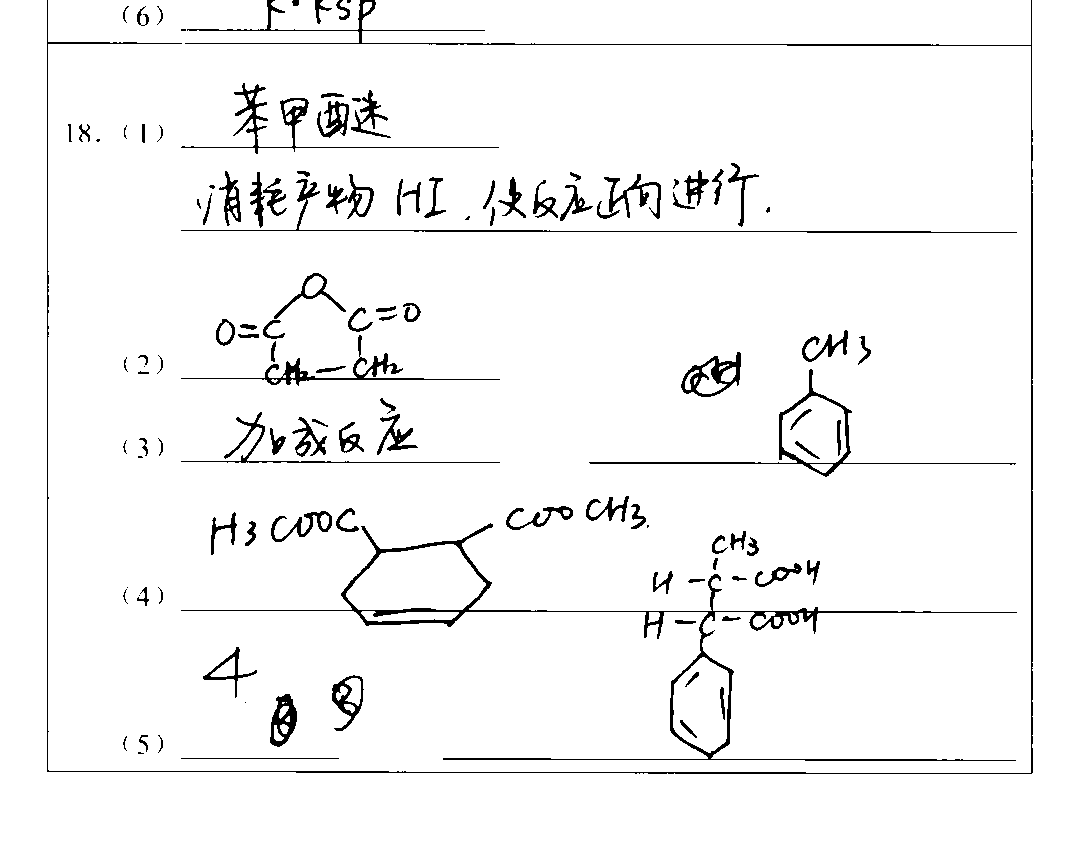 (6) K·Ksp
18. (1) 苯甲醚
消耗产物 HI, 使反应正向进行.
O
O=C C=O
(2) CH2—CH2
CH3
(3) 加成反应
H3COOC COOCH3.
CH3
H-C-COOH
(4)
H-C-COOH
4
(5)